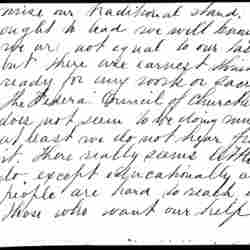 our traditional stand
ought to lead we will know
we are not equal to our
but there are earnest
ready for any work or
The Federal Council of Churches
does not seem to be doing much
at least we do not hear
it. There really seems little
do except educationally
people are hard to reach.
those who want our help